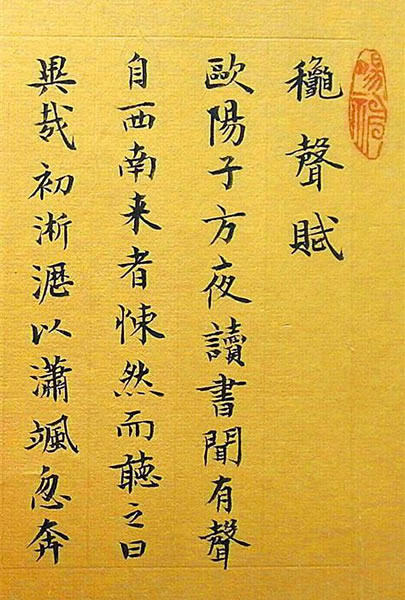 龝聲賦
歐陽子方夜讀書聞有聲
自西南来者悚然而聽之曰
異哉初淅瀝以瀟颯忽奔